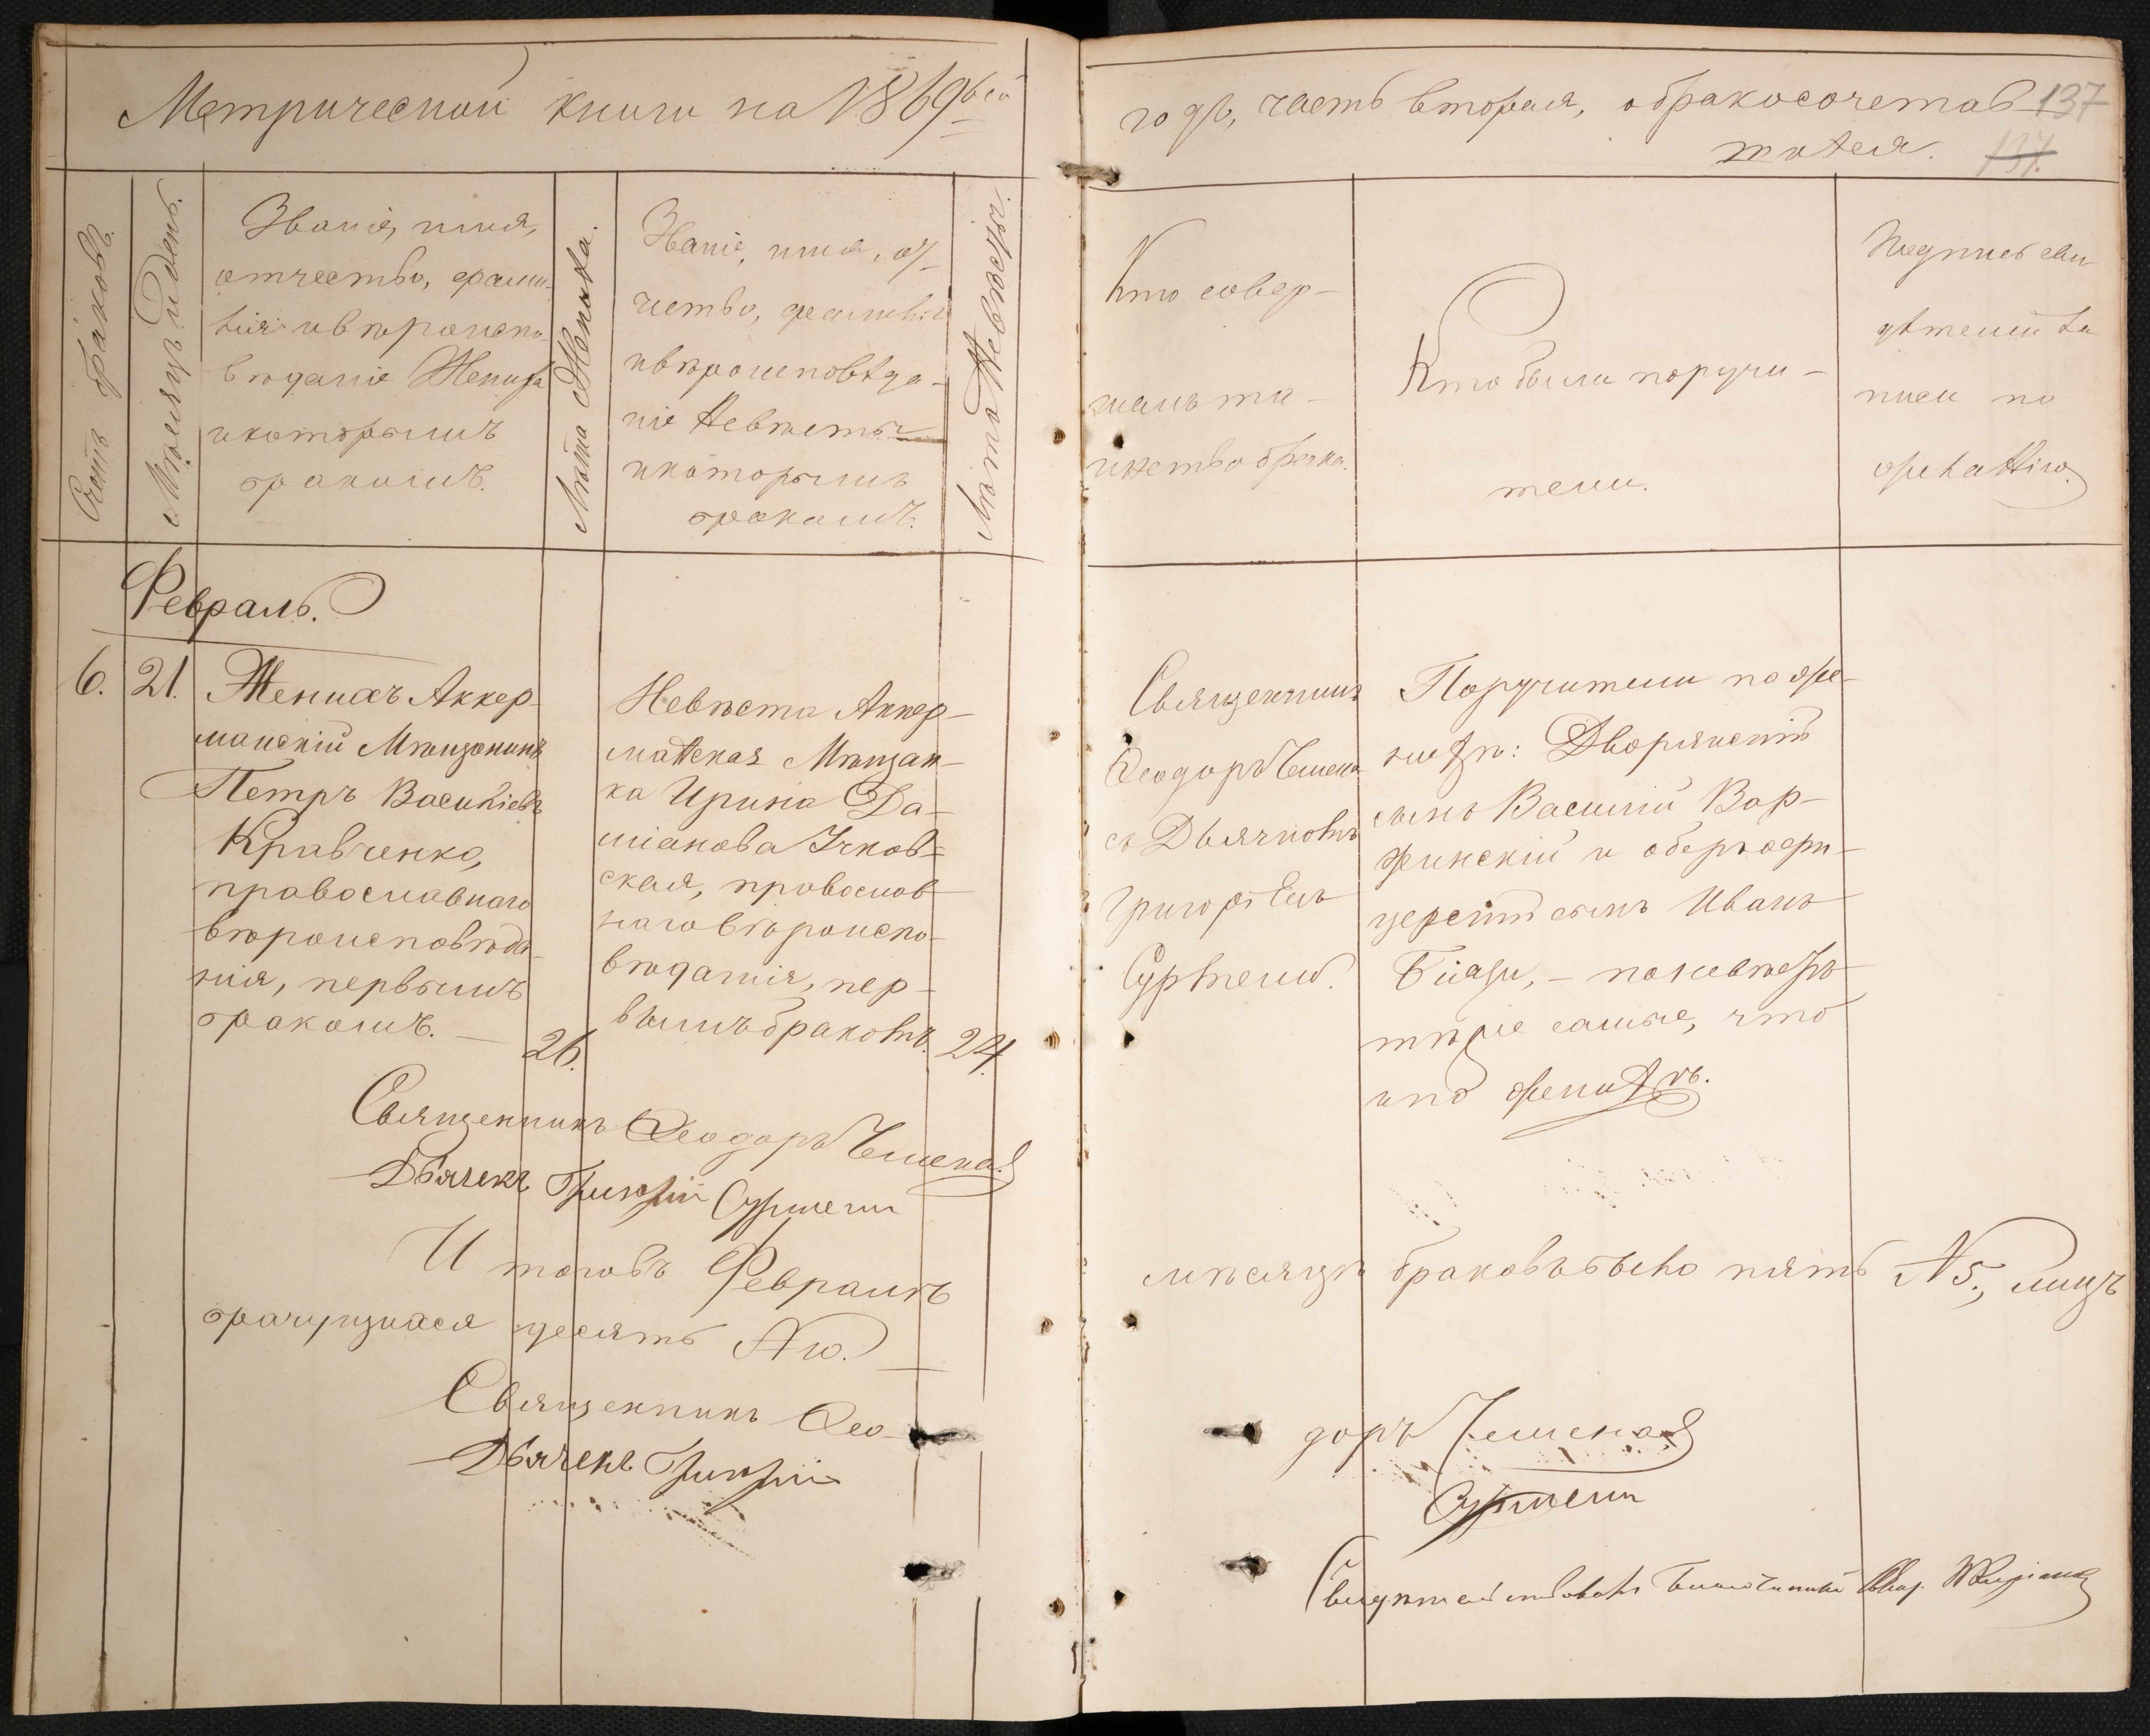 Метрической книги на 1869ый
годъ, часть вторая, о бракосочетав-
шихся.
137
137.
Счетъ браковъ.
Мѣсяцъ и день.
Званіе, имя,
отчество, фами-
лія и вѣроиспо-
вѣданіе Жениха
и которымъ
бракомъ.
Лѣта Жениха.
Званіе, имя, от-
чество, фамилія
и вѣроисповѣда-
ніе Невѣсты
и которымъ
бракомъ.
Лѣта Невѣсты.
Кто совер-
шалъ та-
инство брака.
Кто были поручи-
тели.
Подпись сви
дѣтелей за
писи по
желанію.
Февраль.
6.
21.
Женихъ Аккер-
манскій Мѣщанинъ
Петръ Василіевъ
Кравченко,
православнаго
вѣроисповѣда-
нія, первымъ
бракомъ. —
26.
Невѣста Аккер-
манская Мѣщан-
ка Ирина Да-
міанова
ская, православ
наго вѣроиспо-
вѣданія, пер-
вымъ бракомъ.
24.
Священникъ
Ѳеодоръ
съ Дьячкомъ
Григоріемъ
Поручители по же-
ниху: Дворянскій
сынъ Василій Вар-
жинскій и оберъ офи-
церскій сынъ Иванъ
— по невѣстѣ
тѣже самые, что
и по женихѣ.
Священникъ Ѳеодоръ
Дьячекъ Григорій
Итого въ Февралѣ
мѣсяцѣ браковъ было пять № 5., лицъ
брачущихся десять № 10.
Священникъ Ѳео-
доръ
Дьячекъ Григорій
Свидѣтельствовалъ Благочинный